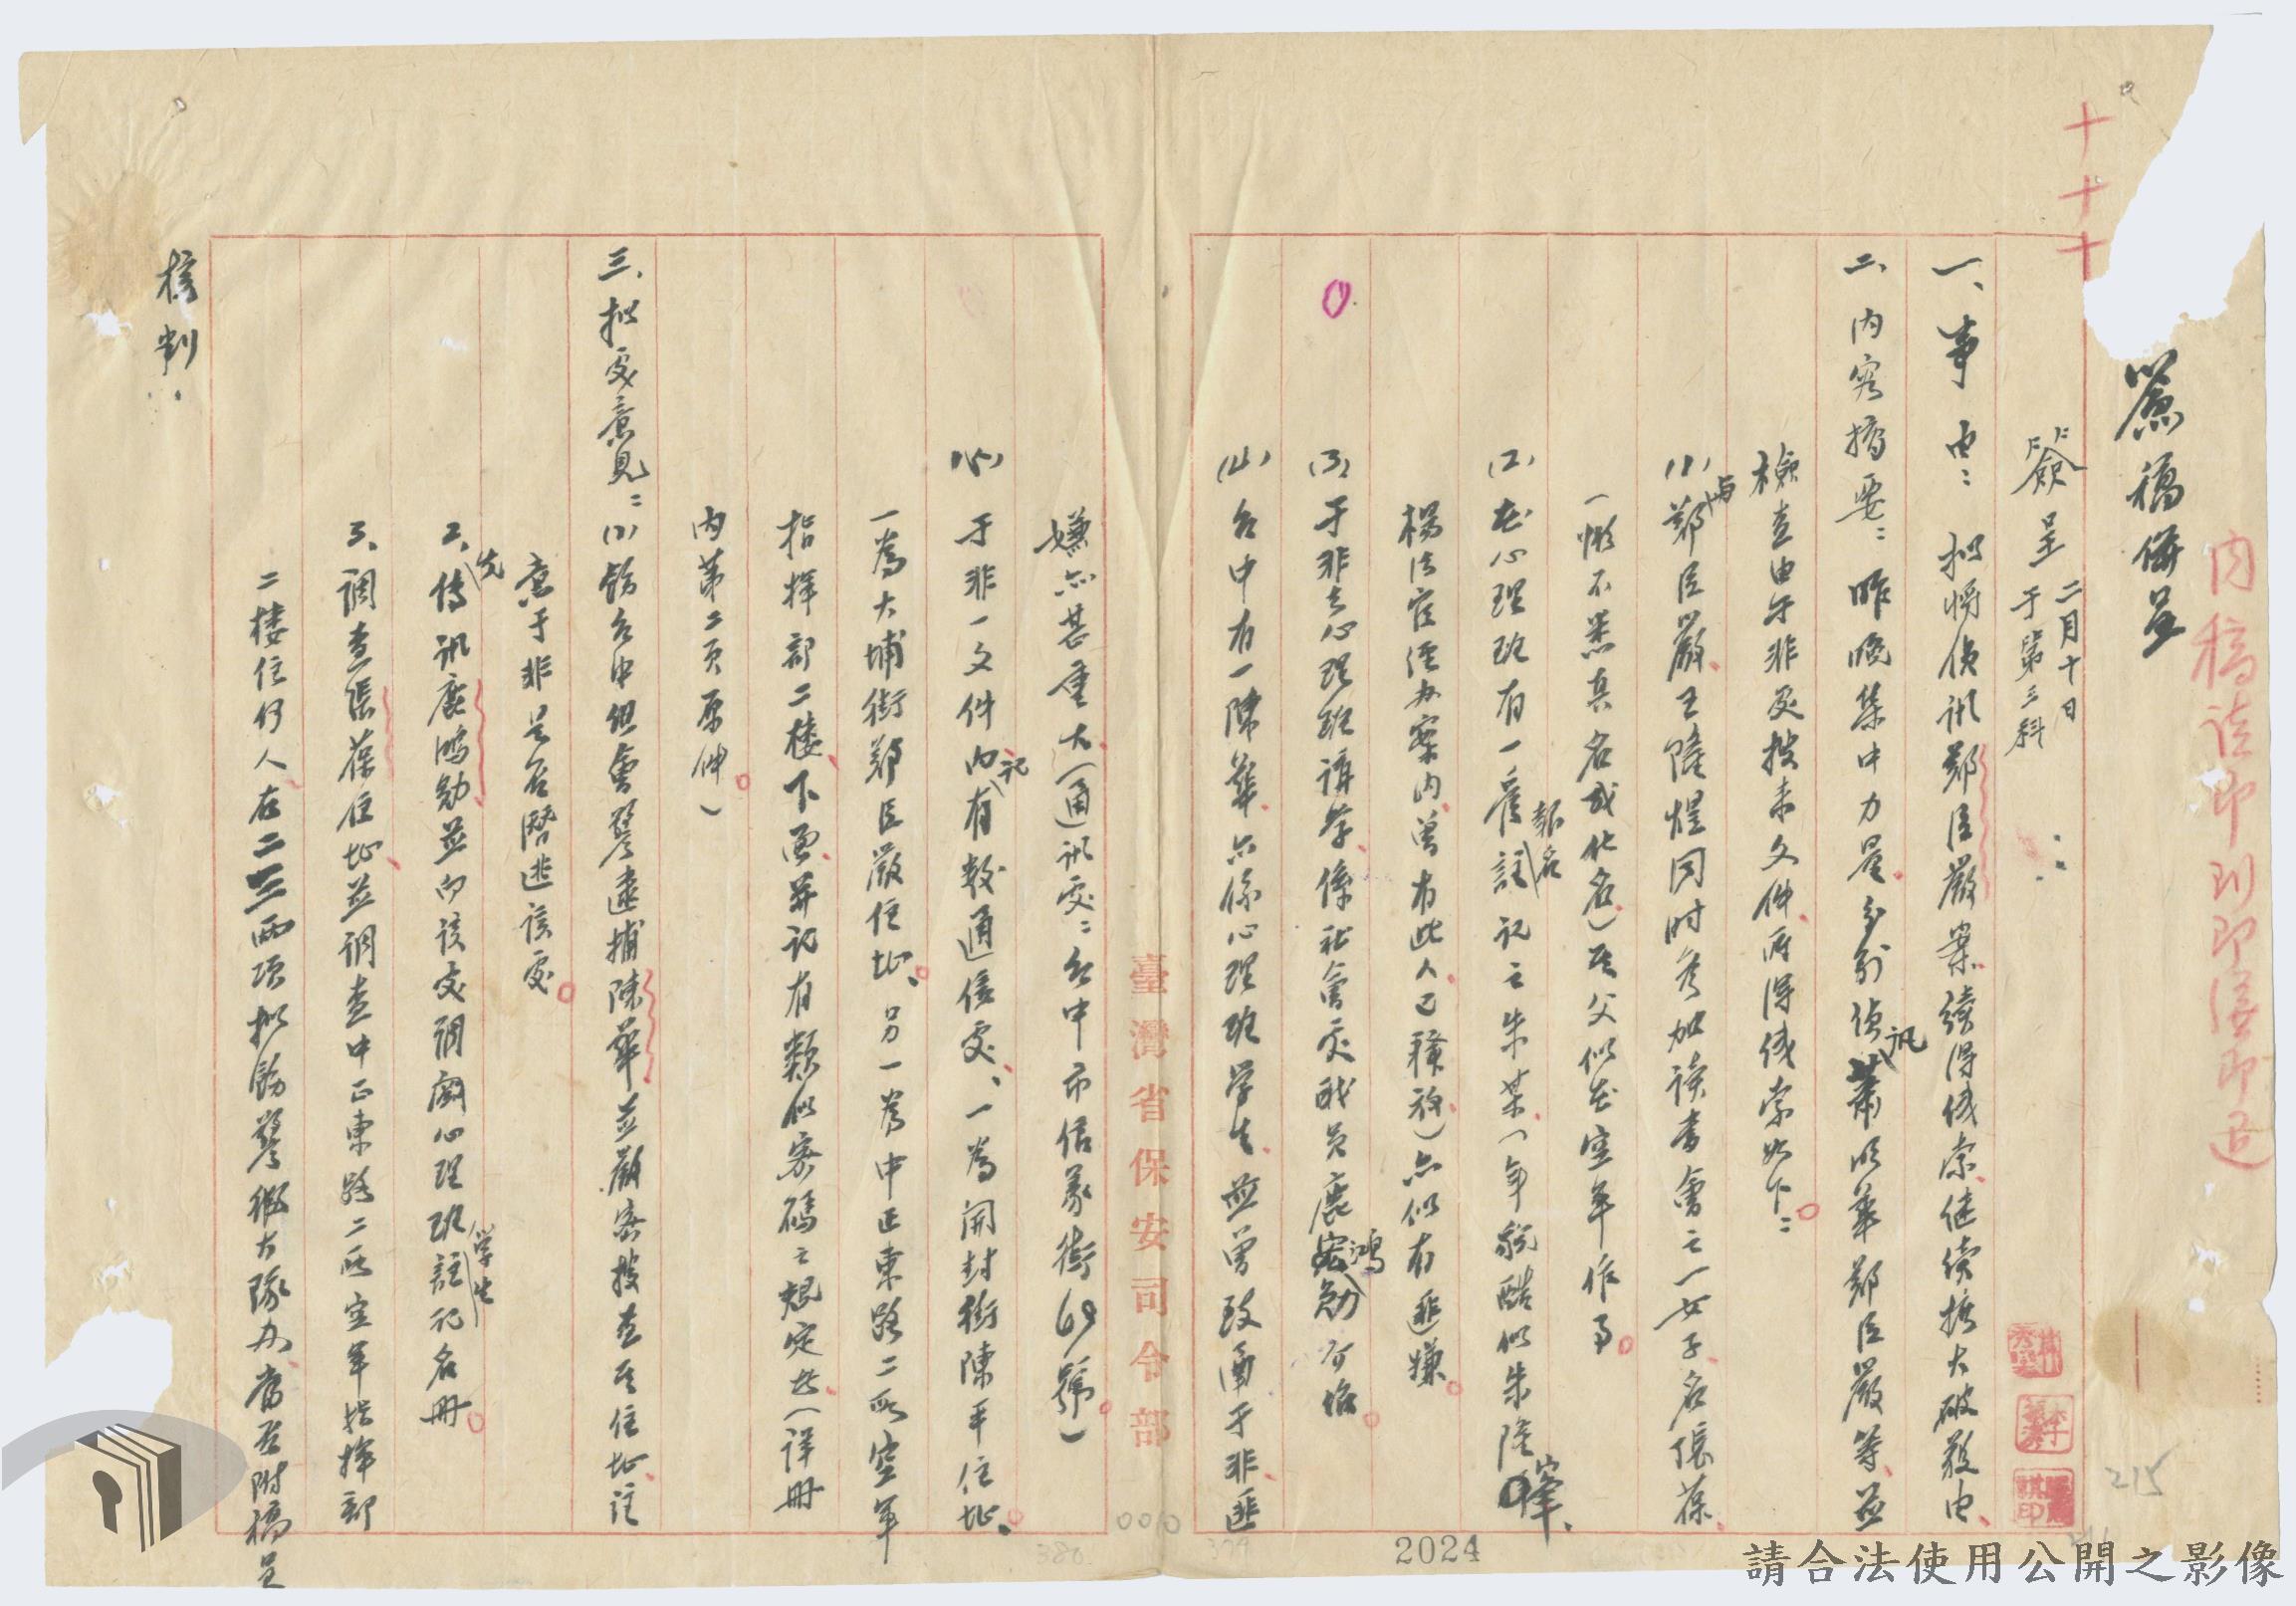 十十十
內稿請即判即繕即送
簽稿併呈
簽呈 二月十日
于第三科
一、事由：拟將偵訊鄭臣嚴案續得線索継續擴大破殺由、
二、內容摘要：昨晚集中力量、分別偵訊蕭明華鄭臣嚴等、並
檢查由于非處搜来文件、所得線索如下：
(1)與鄭臣嚴王隆煜同時参加讀書會之一女子名張葆、
（惟不悉真名或化名）其父似在空軍作事
(2)在心理班有一舊報名註記之朱某（年貌酷似朱隆峯、
楊法官經办案內曾有此人已釋放）亦似有匪嫌
(3)于非去心理班講學、係社會處職員鹿鴻勛介紹
(4)台中有一陳華、亦係心理班學生、並曾致函于非、匪
嫌亦甚重大（通訊處：台中市信義街69號）
臺灣省保安司令部
(5)于非一文件內記有数通信處、一為開封街陳平住址、
一為大埔街鄭臣嚴住址、另一為中正東路二所空軍
指揮部二樓、下面並記有類似密碼之規定些（詳冊
內第二頁原件）
三、拟處意見：(1)飭台中組會警逮捕陳華並嚴密搜查其住址、注
意于非是否潛逃該處
2、先傳訊鹿鴻勛並向該處調閱心理班學生註記名冊
3、調查張葆住址、並調查中正東路二所空軍指揮部
二樓住何人在二三兩項拟飭警總大隊办、當否附稿呈
核判：
215
0010
380
379
2024
請合法使用公開之影像